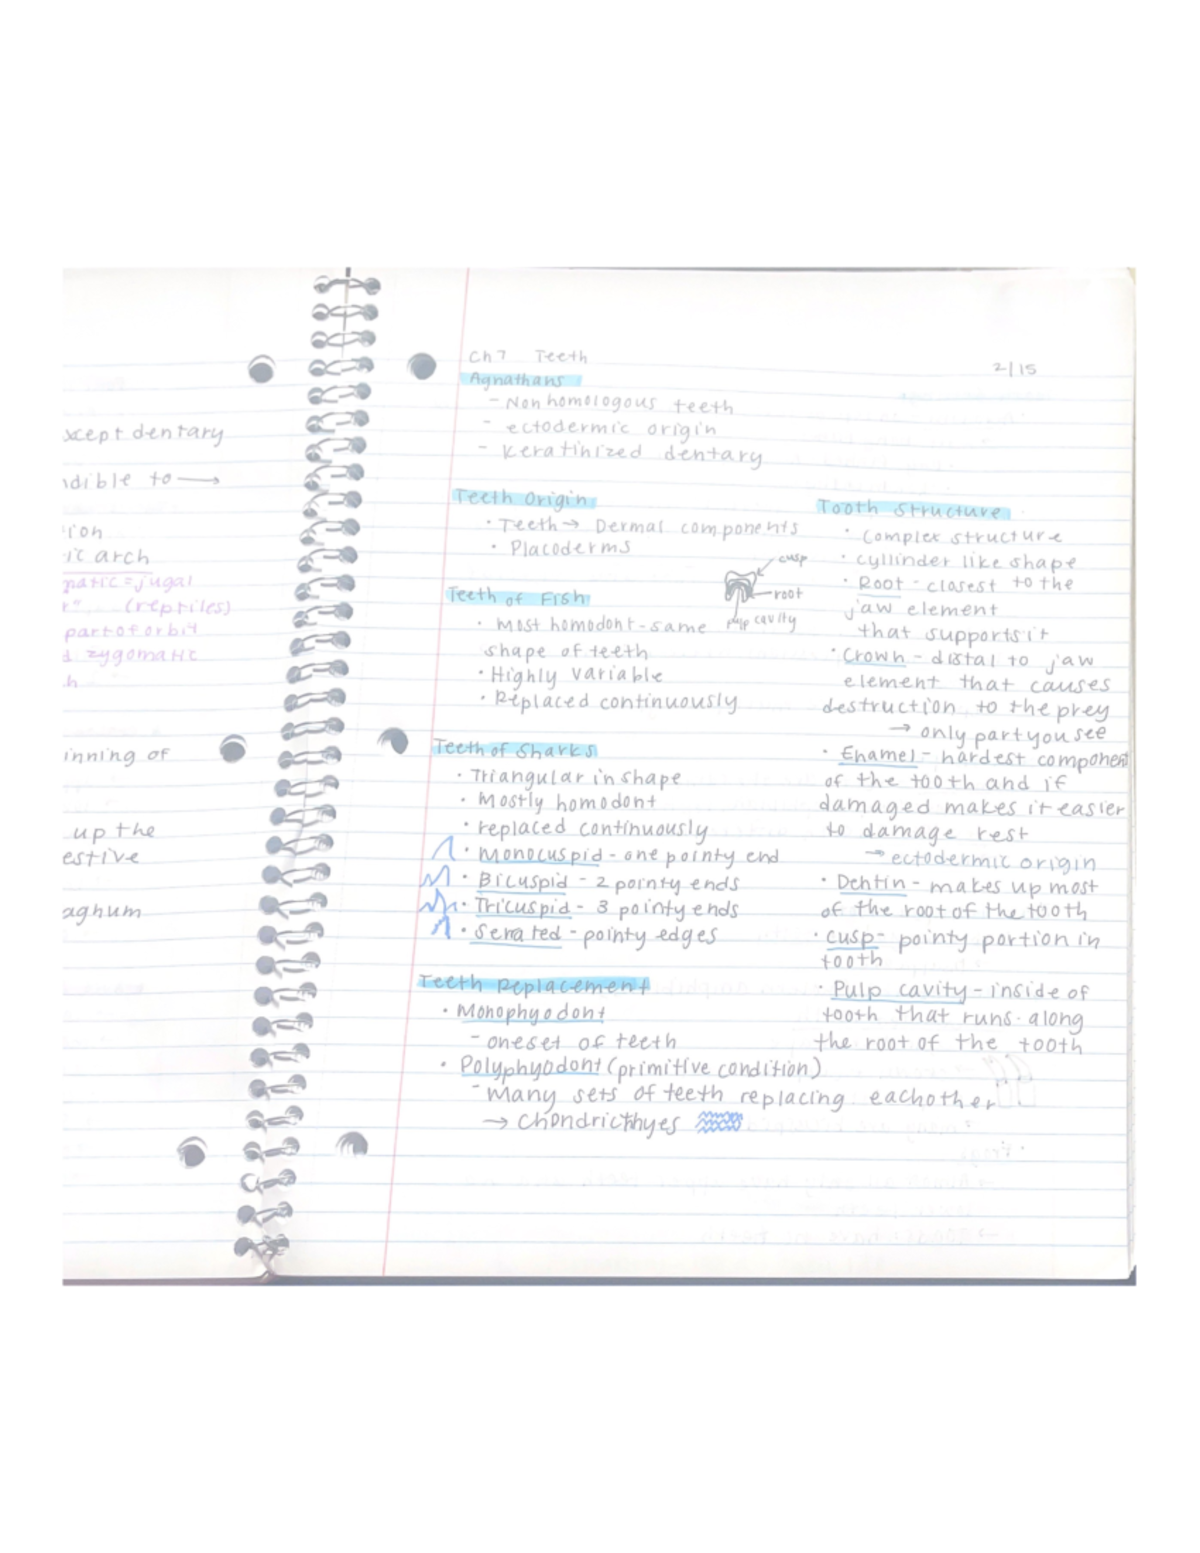 xcept dentary
dible to →
ic arch
matic=jugal
(reptiles)
part of orbit
zygomatic
h
inning of
up the
estive
aghum
Ch 7 Teeth
2/15
Agnathans
- Non homologous teeth
- ectodermic origin
- Keratinized dentary
Teeth Origin
· Teeth → Dermal components
· Placoderms
Teeth of Fish
· Most homodont - same
shape of teeth
· Highly variable
· Replaced continuously
cusp
root
pulp cavity
Teeth of Sharks
· Triangular in shape
· Mostly homodont
· replaced continuously
· Monocuspid - one pointy end
· Bicuspid - 2 pointy ends
· Tricuspid - 3 pointy ends
· Serrated - pointy edges
Teeth Replacement
· Monophyodont
- one set of teeth
· Polyphyodont (primitive condition)
- Many sets of teeth replacing eachother
→ Chondricthyes
Tooth Structure
· Complex structure
· cyllinder like shape
· Root - closest to the
jaw element
that supports it
· Crown - distal to jaw
element that causes
destruction to the prey
→ only part you see
· Enamel - hardest component
of the tooth and if
damaged makes it easier
to damage rest
→ ectodermic origin
· Dentin - makes up most
of the root of the tooth
· cusp - pointy portion in
tooth
· Pulp cavity - inside of
tooth that runs along
the root of the tooth